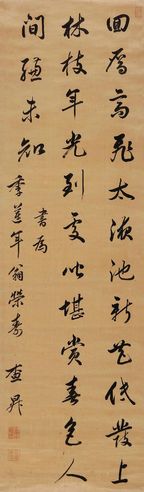 回雁高飛太液池新花低發上
林枝年光到處皆堪賞春色人
間總未知
書為
季並年翁榮壽
查昇